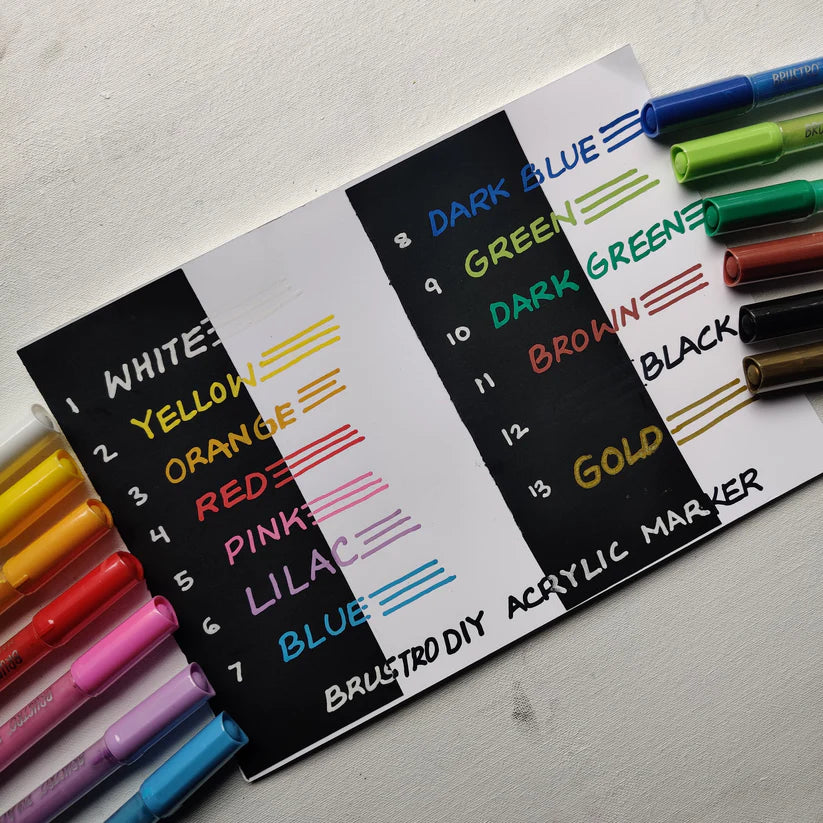 1 WHITE
2 YELLOW
3 ORANGE
4 RED
5 PINK
6 LILAC
7 BLUE
8 DARK BLUE
9 GREEN
10 DARK GREEN
11 BROWN
12 BLACK
13 GOLD
BRUSTRO DIY ACRYLIC MARKER
BRUSTRO
BRU
BRU
BRUSTRO
BRUSTRO